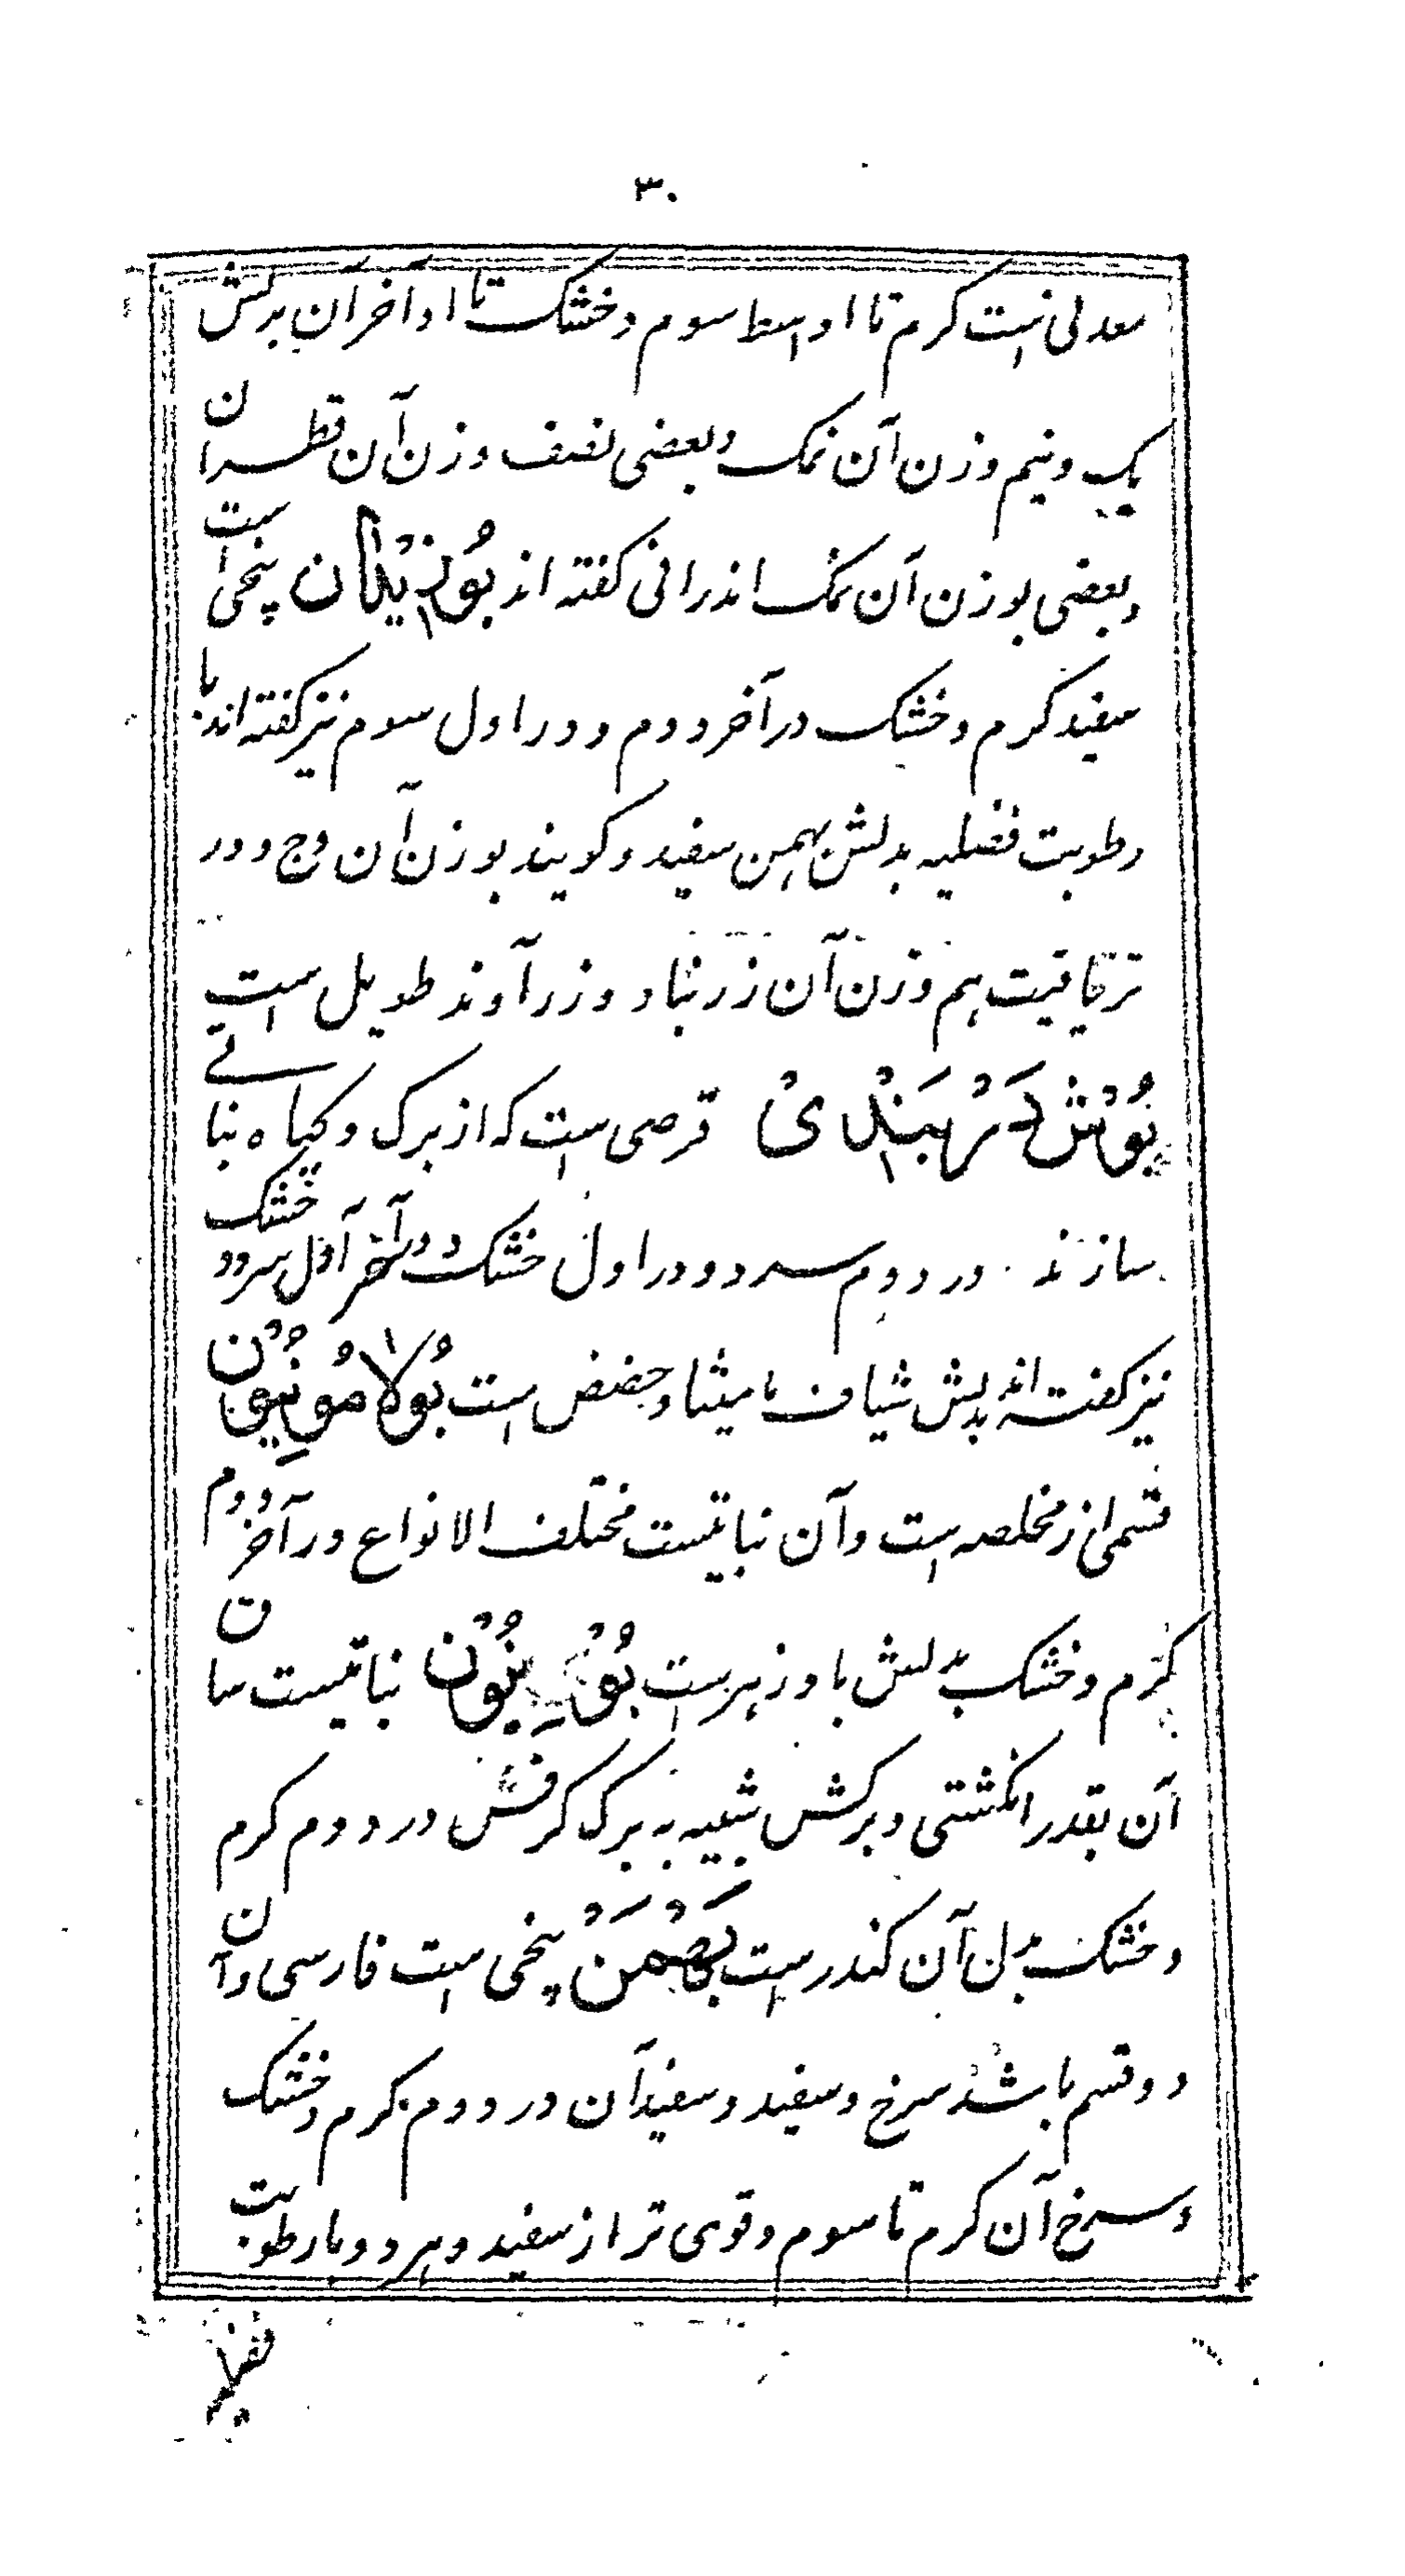 ۳۰
معدنی است گرم تا اواسط سوم و خشک تا اواخر آن بدلش
یک و نیم وزن آن نمک و بعضی نصف وزن آن قطران
و بعضی بوزن آن نمک اندرانی گفته اند بُوزِیْدَان بیخی است
سفید گرم و خشک در آخر دوم و در اول سوم نیز گفته اند با
رطوبت فضلیه بدلش بهمن سفید و گویند بوزن آن وج و در
تریاقیت هم وزن آن زرنباد و زرآوند طویل است
بُوْش دَرْبَنْدِیْ قرصی ست که از برگ و گیاه نباتے
سازند در دوم سرد و در اول خشک و در آخر اول سرد و خشک
نیز گفته اند بدلش شیاف مامیثا و حضض است بُولَامُونِیُونْ
قسمی از مخلصه است و آن نباتیست مختلف الانواع در آخر دوم
گرم و خشک بدلش باد زهرست نباتیست ساق
آن بقدر انگشتی و برگش شبیه به برگ کرفس در دوم گرم
و خشک بدل آن کندر ست بَهْمَنْ بیخی است فارسی و آن
دو قسم باشد سرخ و سفید و سفید آن در دوم گرم و خشک
و سرخ آن گرم تا سوم و قوی تر از سفید و هر دو با رطوبت